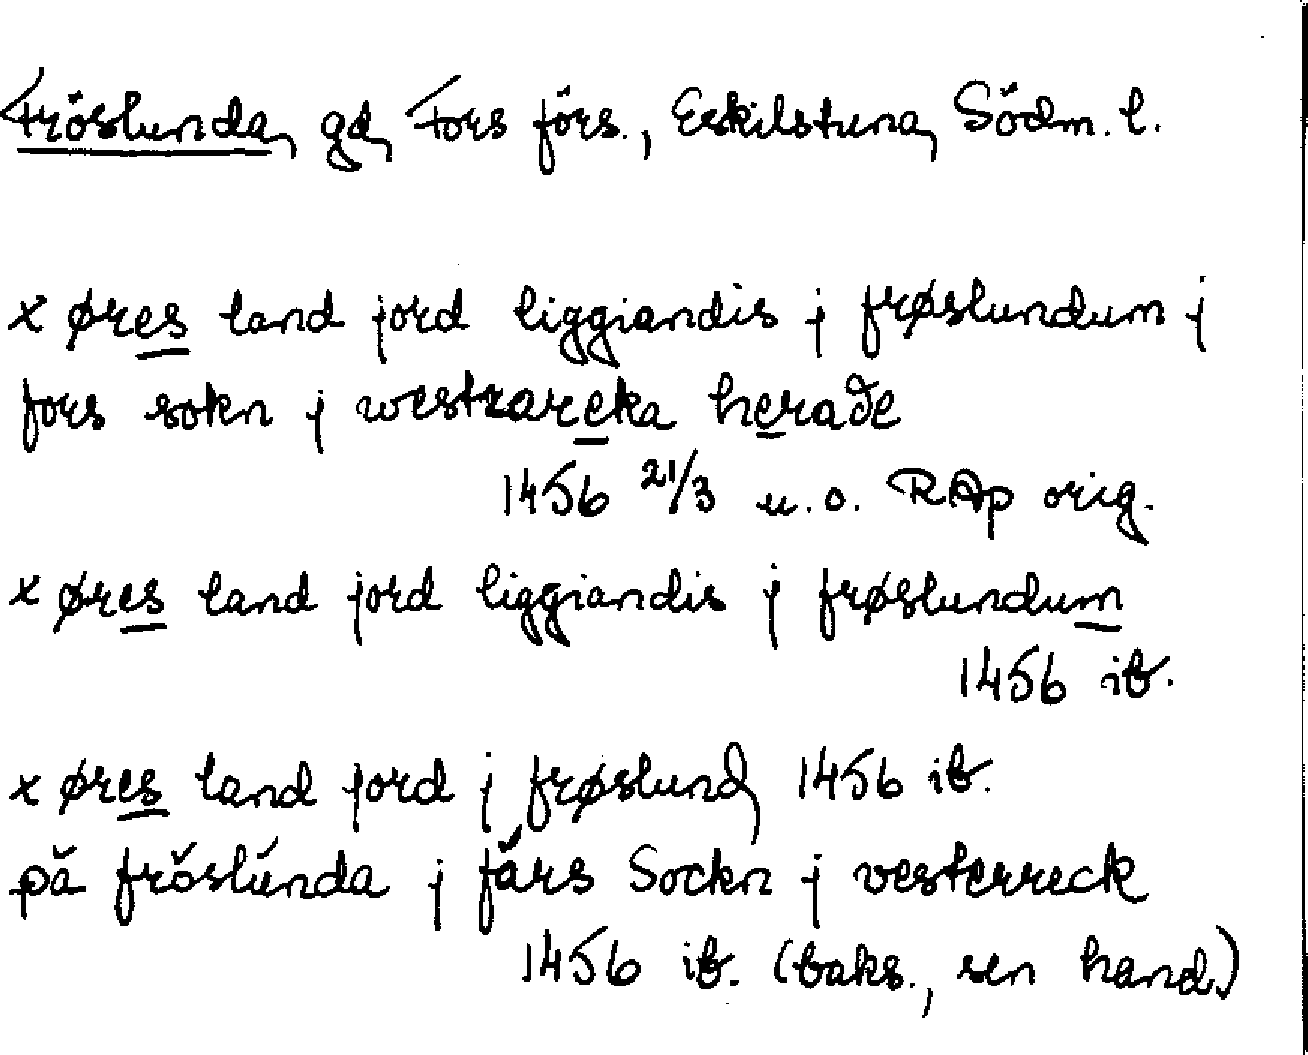 Fröslunda, gd, Fors förs., Eskilstuna, Södm. l.
x øres land jord liggiandis j frøslundum j
fors sokn j westrareka heraðe
1456 21/3 u.o. RAp orig.
x øres land jord liggiandis j frøslundum
1456 ib.
x øres land jord j frøslund 1456 ib.
på fröslúnda j fårs Sockn j vesterreck
1456 ib. (baks., sen hand.)